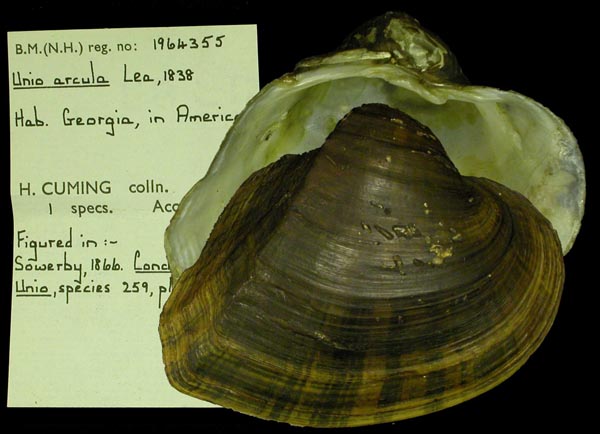 B.M.(N.H.) reg. no: 1964355
Unio arcula Lea, 1838
Hab. Georgia, in Americ
H. CUMING colln.
1 specs. Acc
Figured in :-
Sowerby, 1866. Conc
Unio, species 259, pl